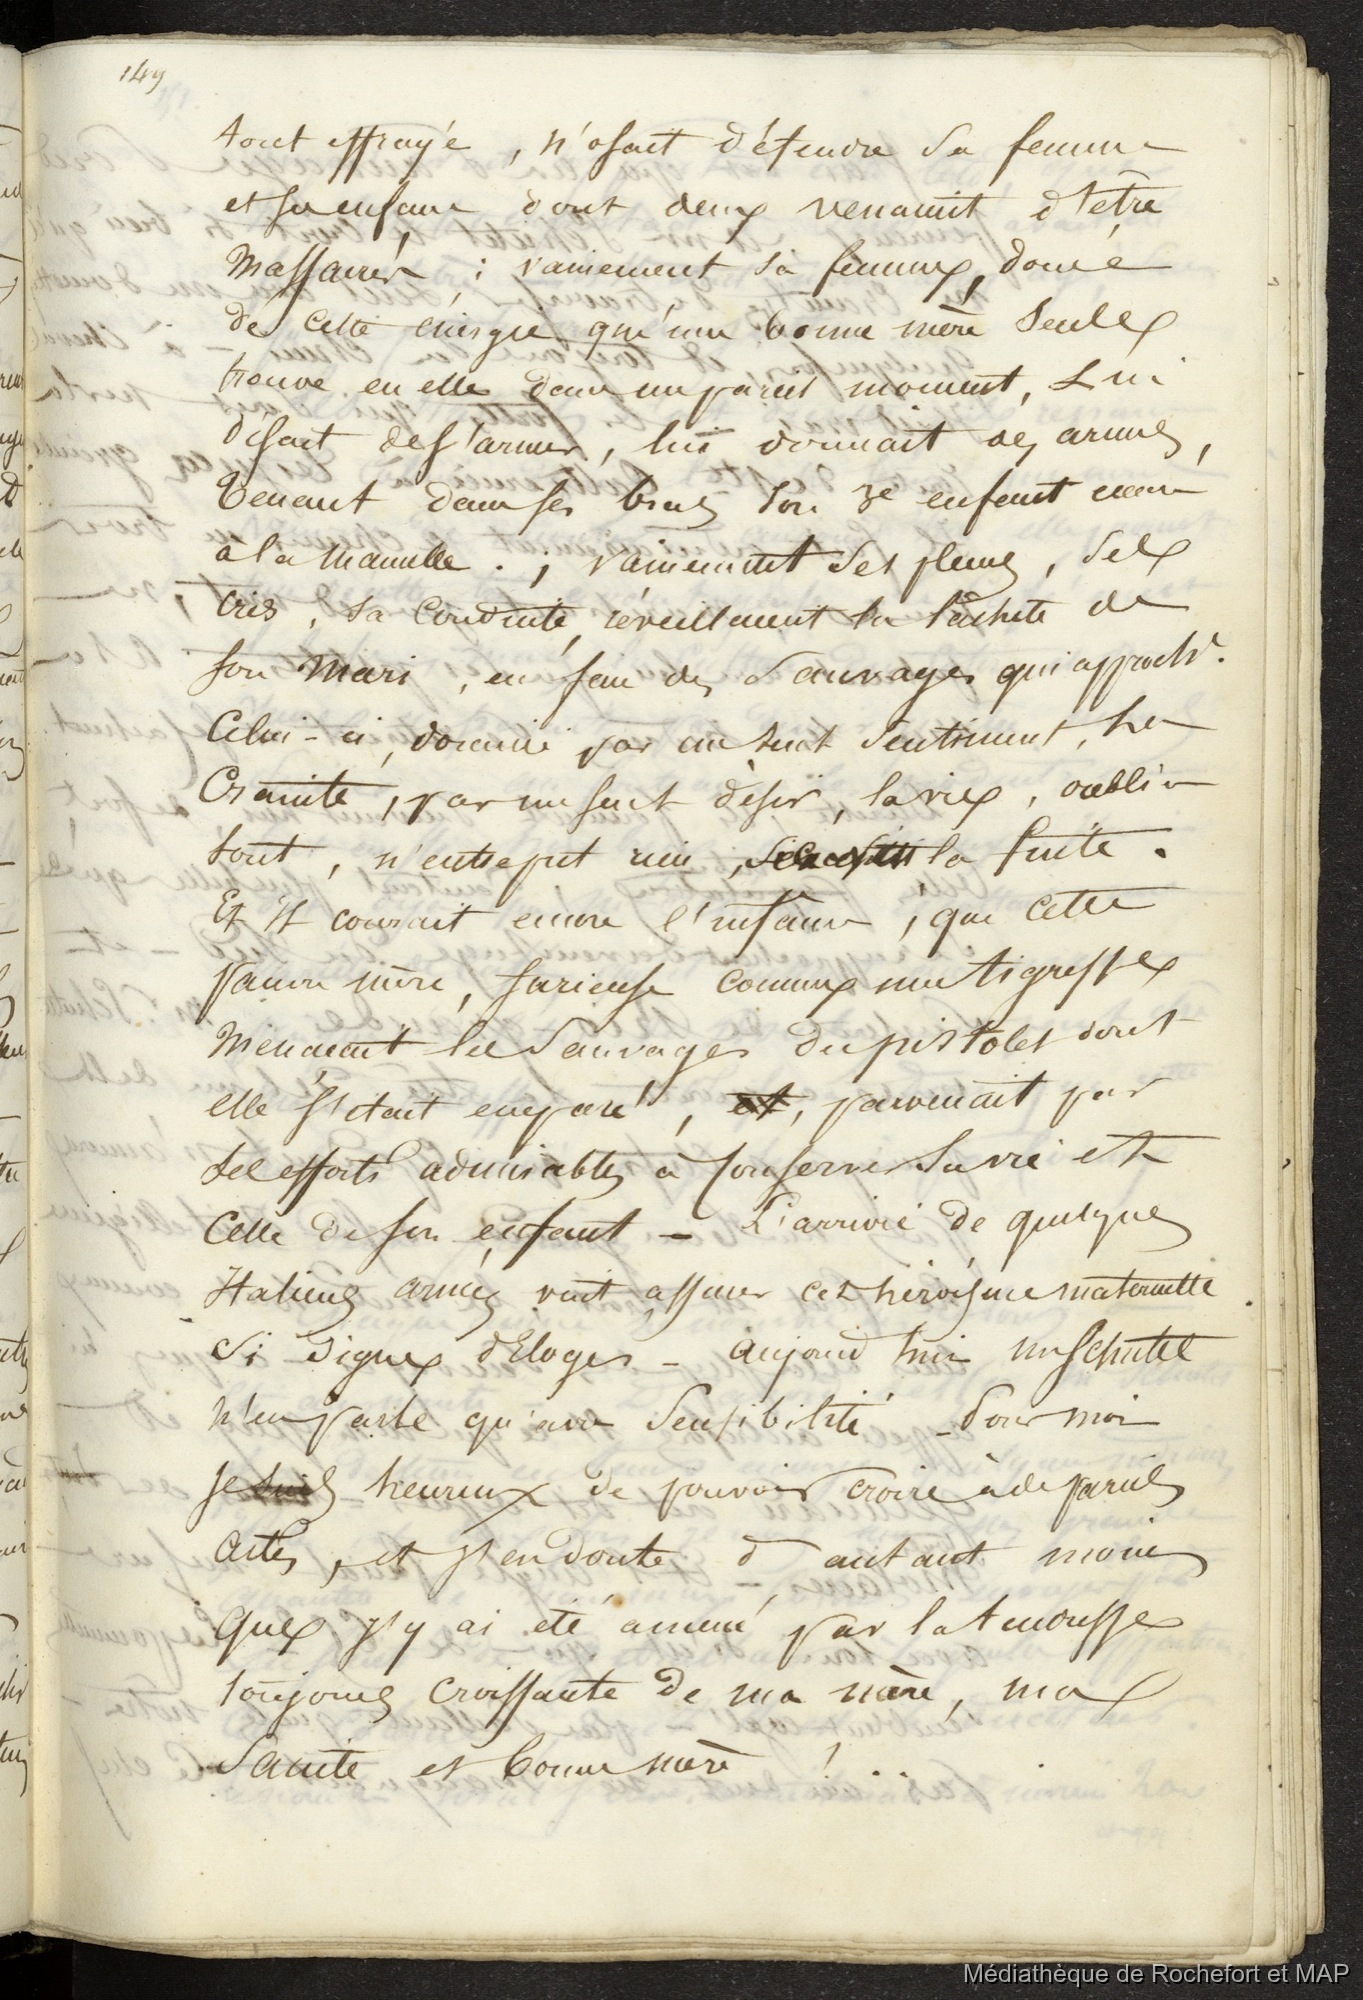 149
tout effrayé, n'osait défendre sa femme
et ses enfans dont deux venaient d'être
massacrés ; vainement sa femme, douée
de cette énergie qu'une bonne mère seule
trouve en elle dans un pareil moment, lui
disait de s'armer, lui donnait des armes,
tenant dans ses bras son 3e enfant encore
à la mamelle. ; vainement ses pleurs, ses
cris, sa conduite, réveillaient la lâcheté de
son mari, en face des sauvages qui approcht.
Celui-ci, dominé par un seul sentiment, la
crainte, par un seul désir, la vie, oublia
tout, n'entreprit rien, la fuite.
Et il courait encore l'infâme, que cette
pauvre mère, furieuse comme une tigresse
menaçait les sauvages du pistolet dont
elle s'était emparé, et, parvenait par
ses efforts admirables à conserver sa vie et
celle de son enfant _ L'arrivée de quelques
Italiens armés vint assurer cet héroïsme maternelle
si digne d'éloges _ aujourd'hui mr Schutel
n'en parle qu'avec sensibilité _ Pour moi
je suis heureux de pouvoir croire à de pareils
actes, et j'en doute d'autant moins
que j'y ai été amené par la tendresse
toujours croissante de ma mère, ma
Sainte et bonne mère ! . .
Médiathèque de Rochefort et MAP